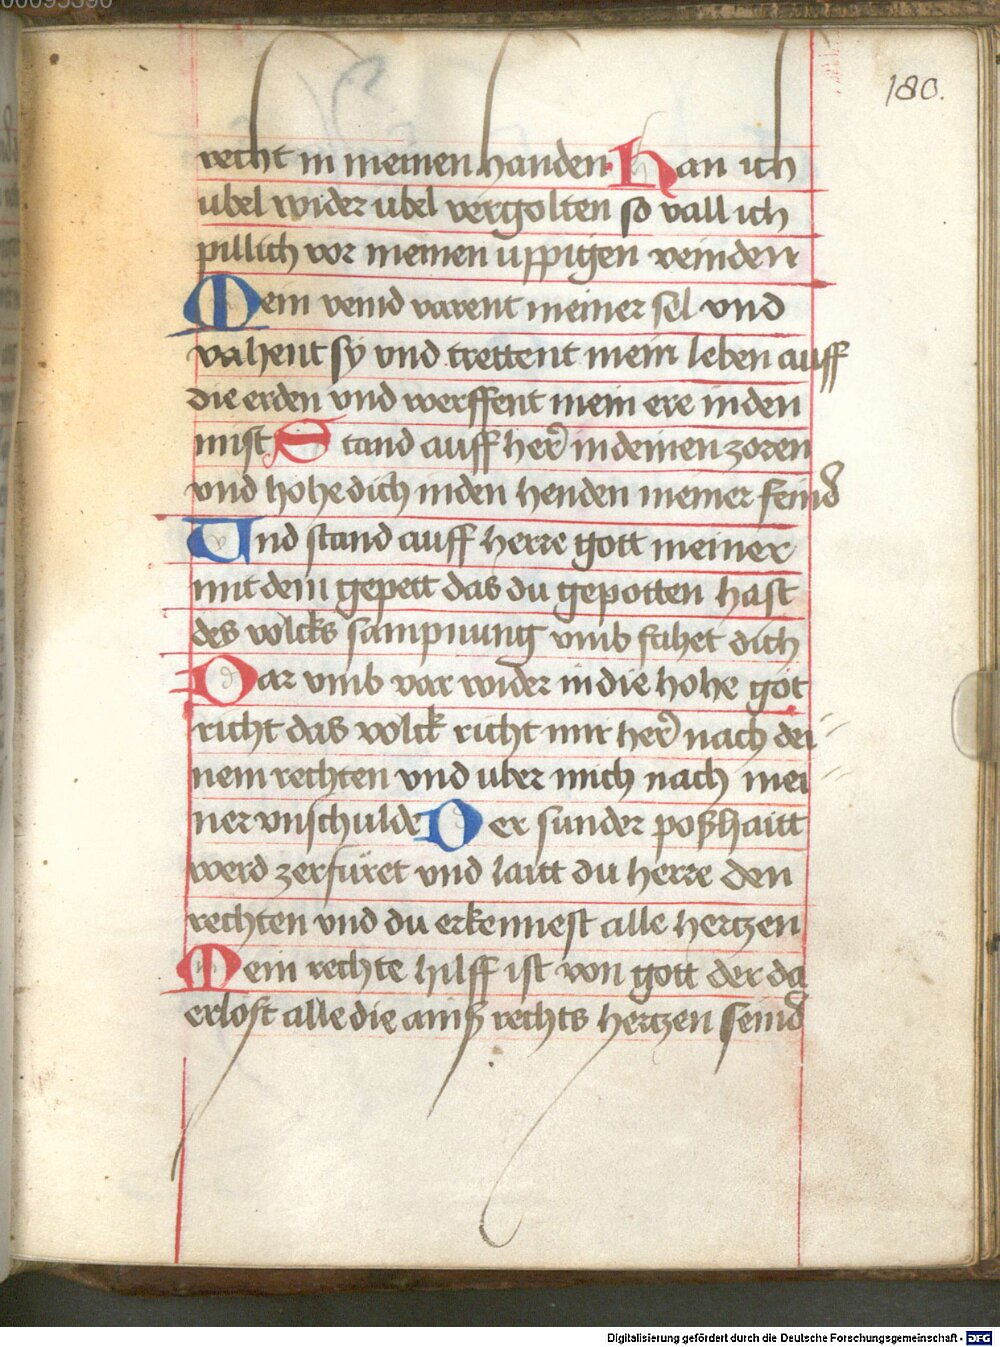 00095390
180.
recht in meinen handen Han ich
ubel wider ubel vergolten so vall ich
pillich vor meinen uppigen veinden
Mein veind varent meiner sel vnd
vahent sy vnd trettent mein leben auff
die erden vnd werffent mein ere in den
mist Stand auff her̄ in deinen zoren
vnd hohe dich in den henden meiner feind
Und stand auff herre gott meiner
mit dem gepett das du gepotten hast
des volcks sampnung vmb fahet dich
Dar vmb var wider in die hohe got
richt das volck richt mir her̄ nach dei
nem rechten vnd uber mich nach mei
ner vnschulde Der sunder poßhaitt
werd zerfüret vnd laitt du herre den
rechten vnd du erkennest alle hertzen
Mein rechte hilff ist von gott der da
erlost alle die ainß rechts hertzen seind
Digitalisierung gefördert durch die Deutsche Forschungsgemeinschaft - DFG